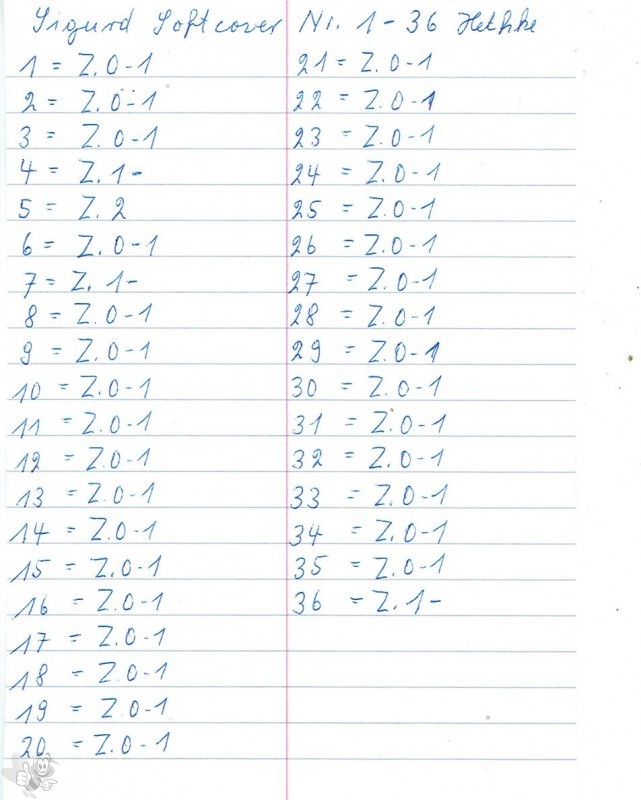 Sigurd Softcover Nr. 1-36 Hethke
1 = Z.0-1
2 = Z.0-1
3 = Z.0-1
4 = Z.1-
5 = Z.2
6 = Z.0-1
7 = Z.1-
8 = Z.0-1
9 = Z.0-1
10 = Z.0-1
11 = Z.0-1
12 = Z.0-1
13 = Z.0-1
14 = Z.0-1
15 = Z.0-1
16 = Z.0-1
17 = Z.0-1
18 = Z.0-1
19 = Z.0-1
20 = Z.0-1
21 = Z.0-1
22 = Z.0-1
23 = Z.0-1
24 = Z.0-1
25 = Z.0-1
26 = Z.0-1
27 = Z.0-1
28 = Z.0-1
29 = Z.0-1
30 = Z.0-1
31 = Z.0-1
32 = Z.0-1
33 = Z.0-1
34 = Z.0-1
35 = Z.0-1
36 = Z.1-